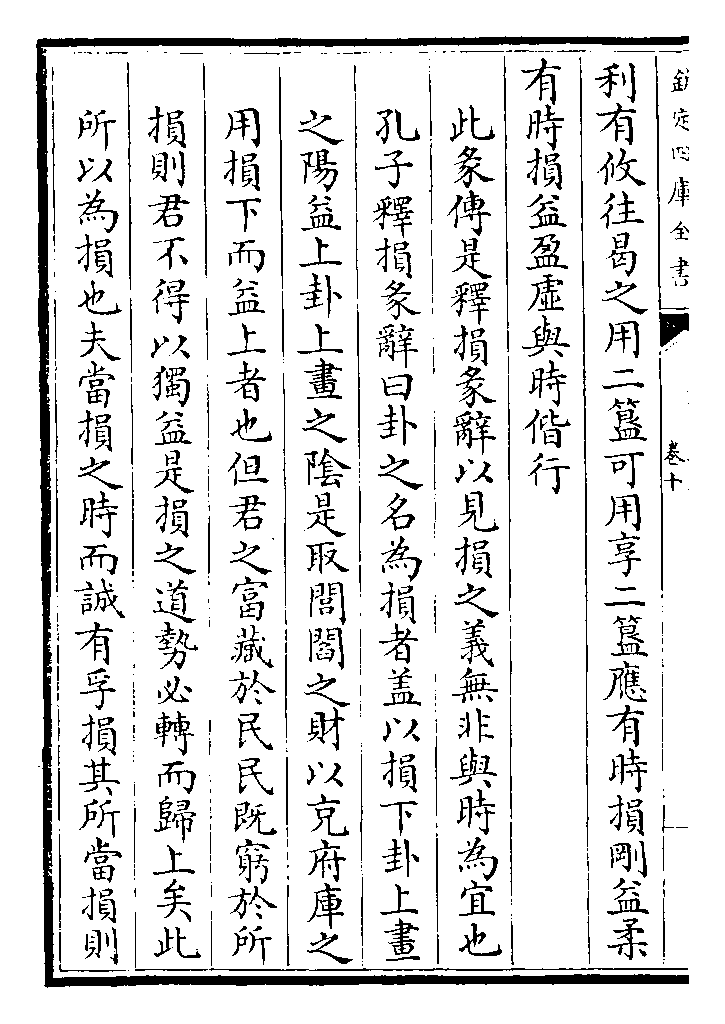 欽定四庫全書
卷十
利有攸往曷之用二簋可用享二簋應有時損剛益柔
有時損益盈虛與時偕行
此彖傳是釋損彖辭以見損之義無非與時為宜也
孔子釋損彖辭曰卦之名為損者盖以損下卦上畫
之陽益上卦上畫之陰是取閭閻之財以充府庫之
用損下而益上者也但君之富藏於民民既窮於所
損則君不得以獨益是損之道勢必轉而歸上矣此
所以為損也夫當損之時而誠有孚損其所當損則